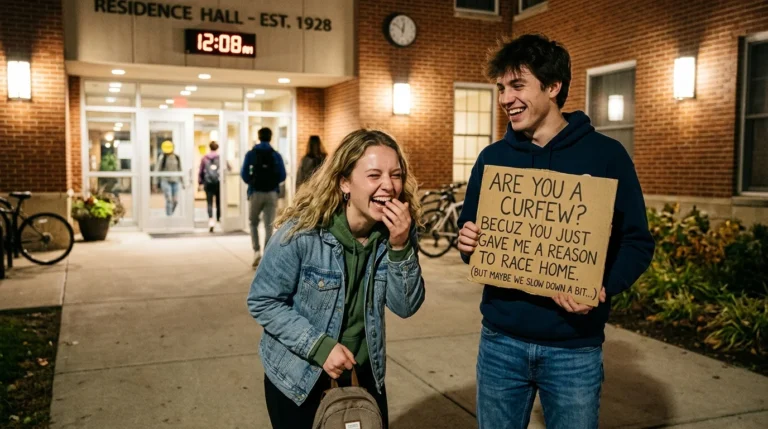 RESIDENCE HALL - EST. 1928
12:08 AM
ARE YOU A
CURFEW?
BECUZ YOU JUST
GAVE ME A REASON
TO RACE HOME.
(BUT MAYBE WE SLOW DOWN A BIT...)